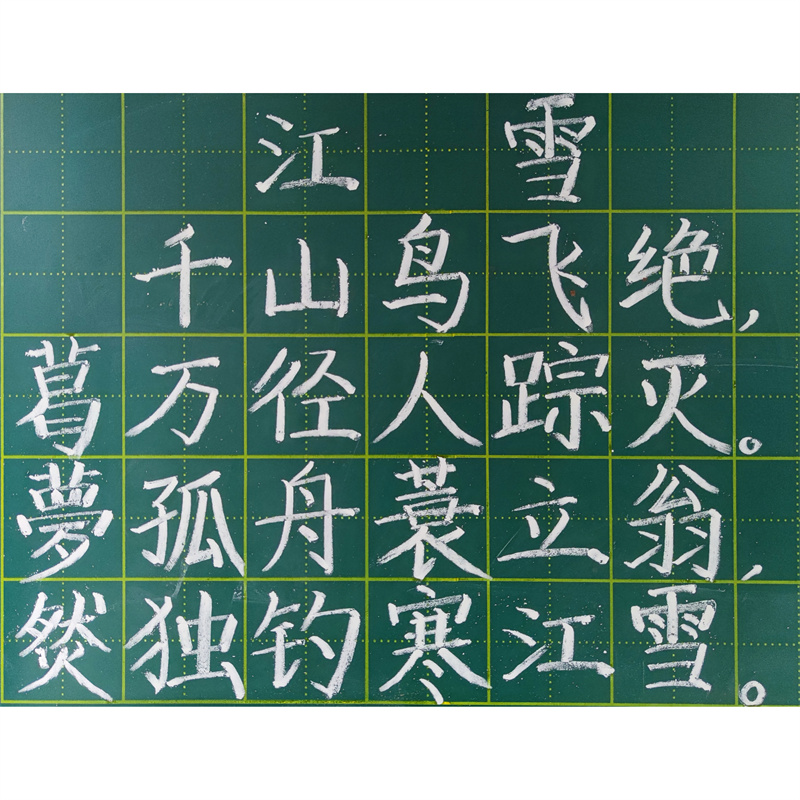 江雪
千山鸟飞绝,
万径人踪灭。
孤舟蓑立翁,
独钓寒江雪。
葛夢然